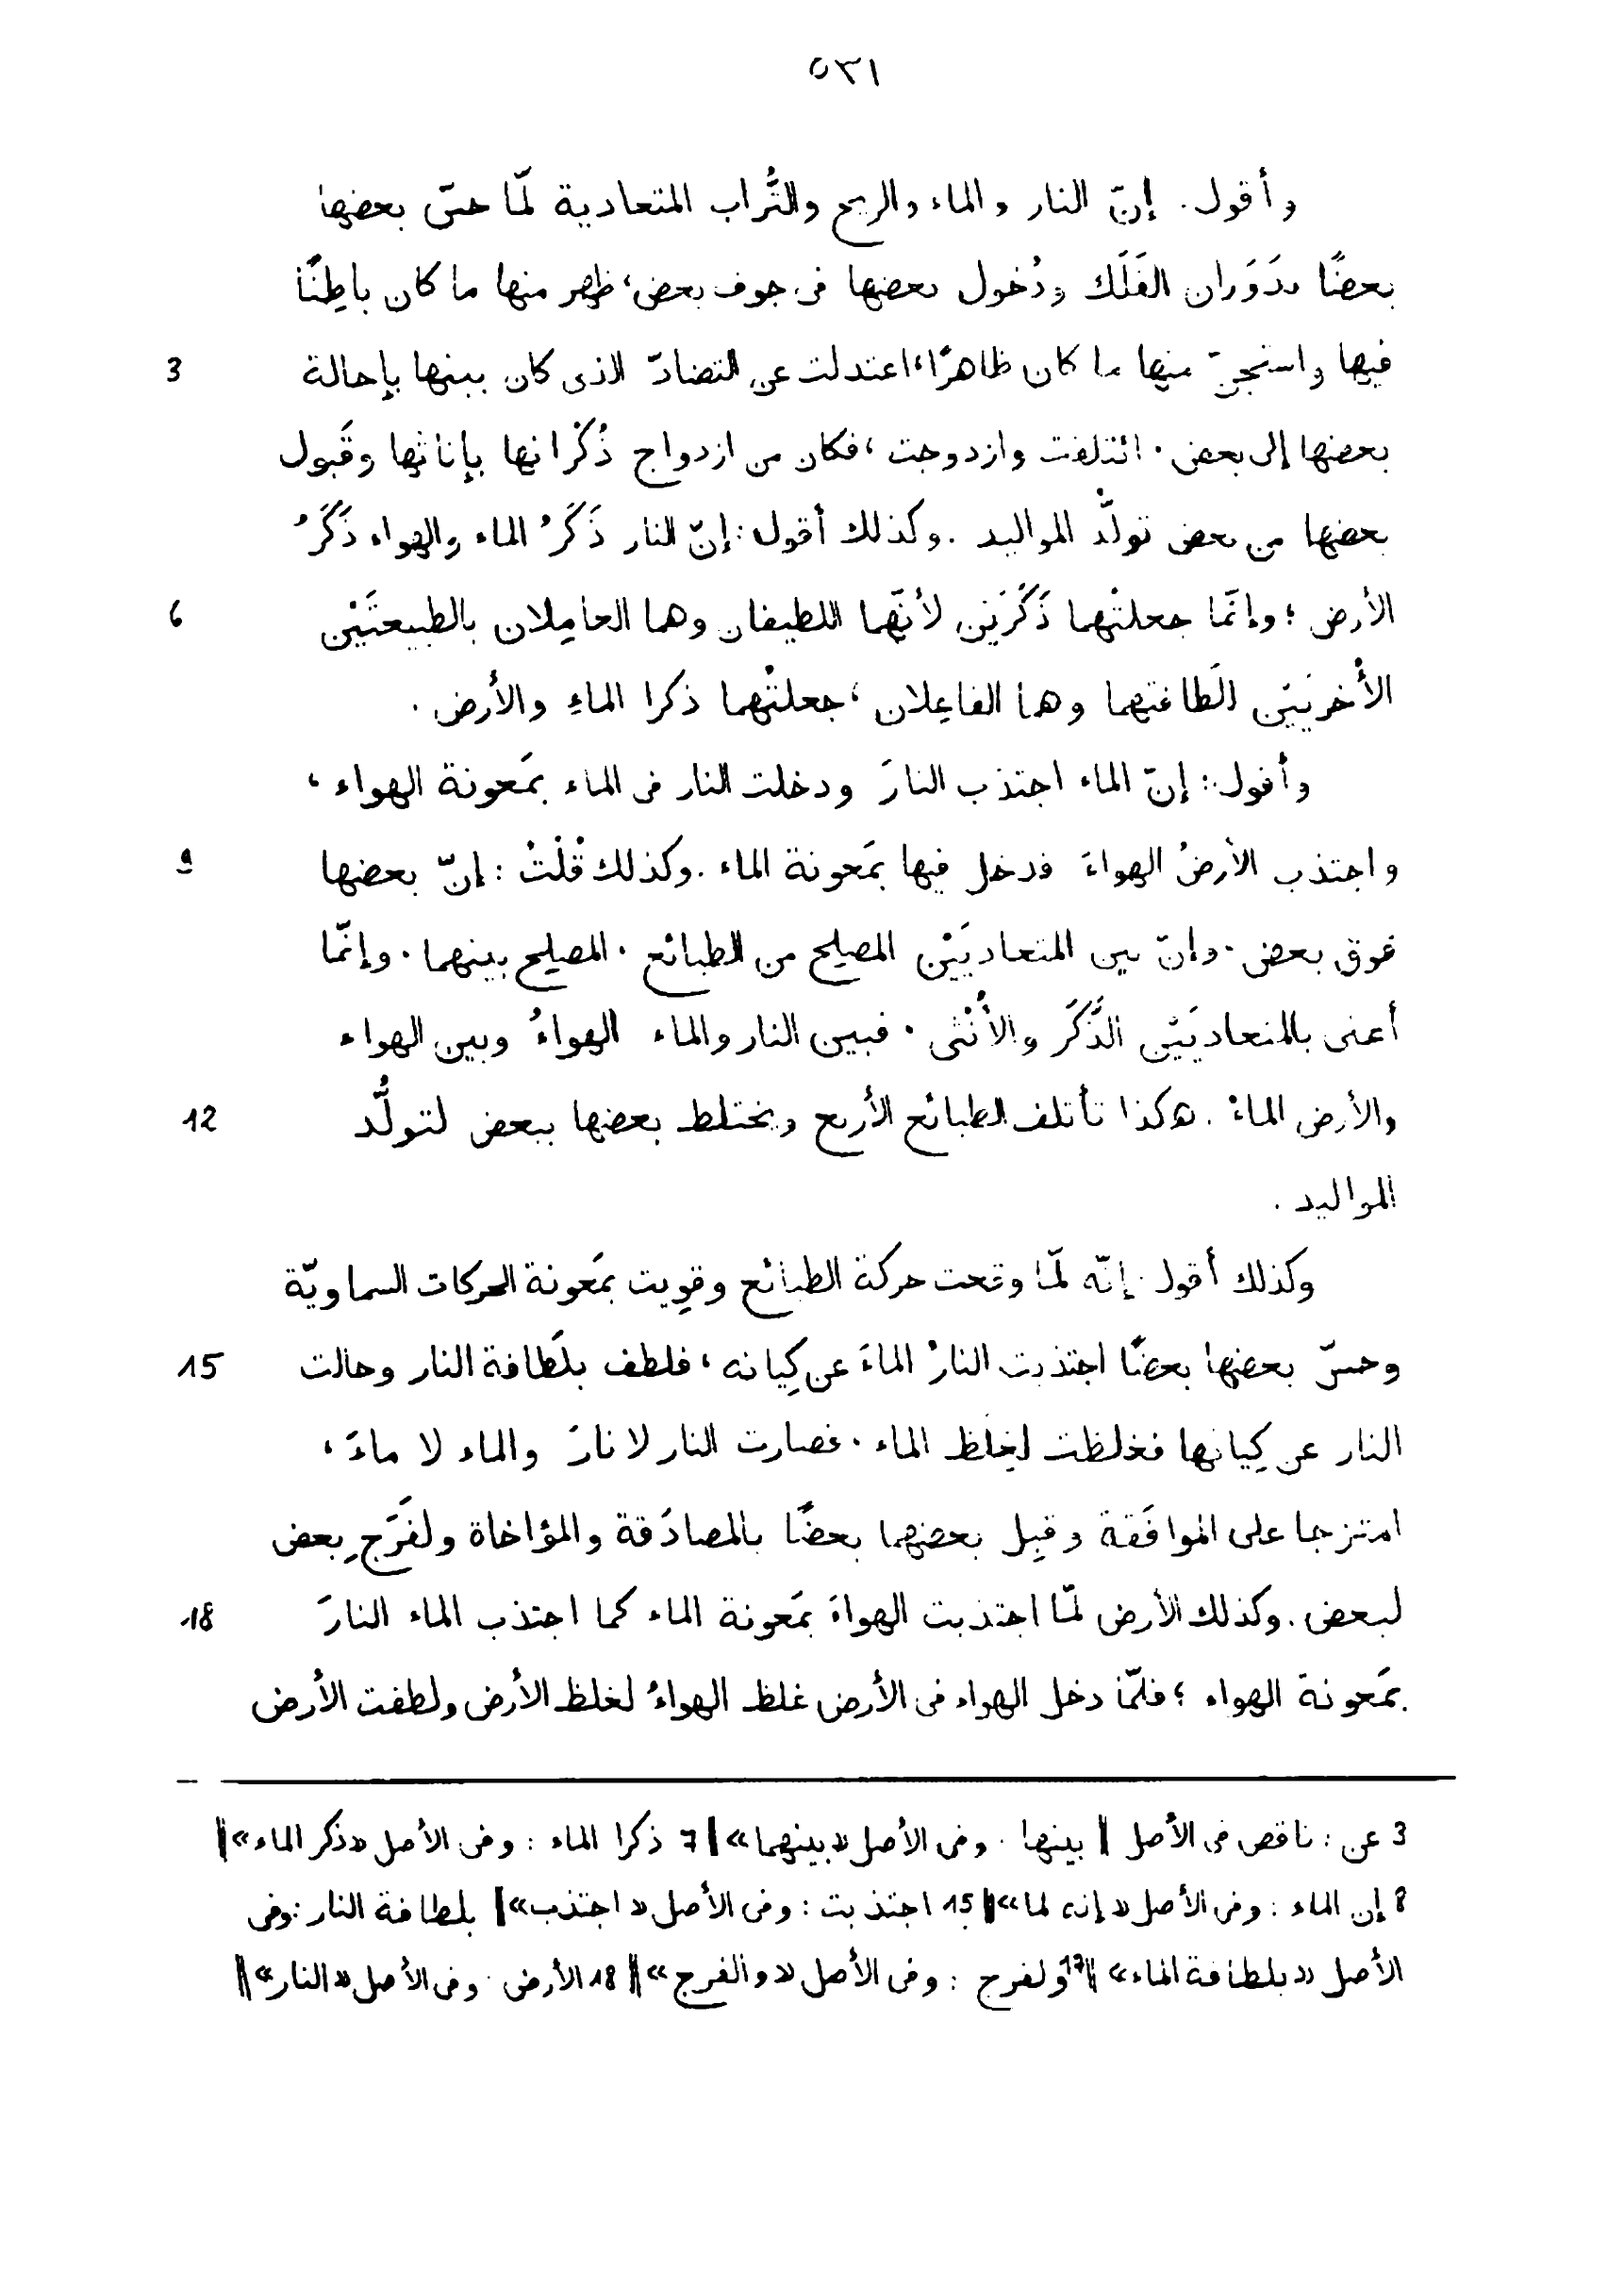 ٥٣١
وأقول: إنّ النار والماء والريح والتُّراب المتعادية لمّا حسّ بعضها
بعضًا بدَوَران الفَلَك ودُخول بعضها فى جوف بعض، ظهر منها ما كان باطِنًا
3 فيها واستجنّ منها ما كان ظاهرًا، اعتدلت عن التضادّ الذى كان بينها بإحالة
بعضها إلى بعض. ائتلفت وازدوجت، فكان من ازدواج ذُكْرانها بإناثها وقَبول
بعضها من بعض تولُّد المواليد. وكذلك أقول: إنّ النار ذَكَرُ الماء والهواء ذَكَرُ
6 الأرض؛ وإنّما جعلتْهما ذَكَرَيْن لأنّهما اللطيفان وهما العامِلان بالطبيعتَيْن
الأُخريَيْن للَطافتهما وهما الفاعِلان، جعلتْهما ذكرا الماءِ والأرض.
وأقول: إنّ الماء اجتذب النارَ ودخلت النار فى الماء بمَعونة الهواء،
9 واجتذب الأرضُ الهواءَ فدخل فيها بمَعونة الماء. وكذلك قُلْتُ: إنّ بعضها
فوق بعض. وإنّ بين المتعاديَيْن المصلِح من الطبائع. المصلِح بينهما. وإنّما
أعنى بالمتعاديَيْن الذَّكَر والأُنْثى. فبين النار والماء الهواءُ وبين الهواء
12 والأرض الماءُ. هكذا تأتلف الطبائع الأربع ويختلط بعضها ببعض لتولُّد
المواليد.
وكذلك أقول: إنّه لمّا وقعت حركة الطبائع وقوِيت بمَعونة الحركات السماويّة
15 وحسّ بعضها بعضًا اجتذبت النارُ الماءَ عن كِيانه، فلطف بلَطافة النار وحالت
النار عن كِيانها فغلظت لغِلَظ الماء. فصارت النار لا نارَ والماء لا ماءَ،
امتزجا على الموافَقة وقبِل بعضهما بعضًا بالمصادَقة والمؤاخاة ولفَرَجِ بعض
18 لبعض. وكذلك الأرض لمّا اجتذبت الهواءَ بمَعونة الماء كما اجتذب الماء النارَ
بمَعونة الهواء؛ فلمّا دخل الهواء فى الأرض غلظ الهواءُ لغلظ الأرض ولطفت الأرض
3 عن: ناقص فى الأصل ‖ بينها: وفى الأصل «بينهما» ‖ 7 ذكرا الماء: وفى الأصل «ذكر الماء» ‖
8 إن الماء: وفى الأصل «إنه لما» ‖ 15 اجتذبت: وفى الأصل «اجتذب» ‖ بلطافة النار: وفى
الأصل «بلطافة الماء» ‖ 17 ولفرج: وفى الأصل «والفرج» ‖ 18 الأرض: وفى الأصل «النار» ‖